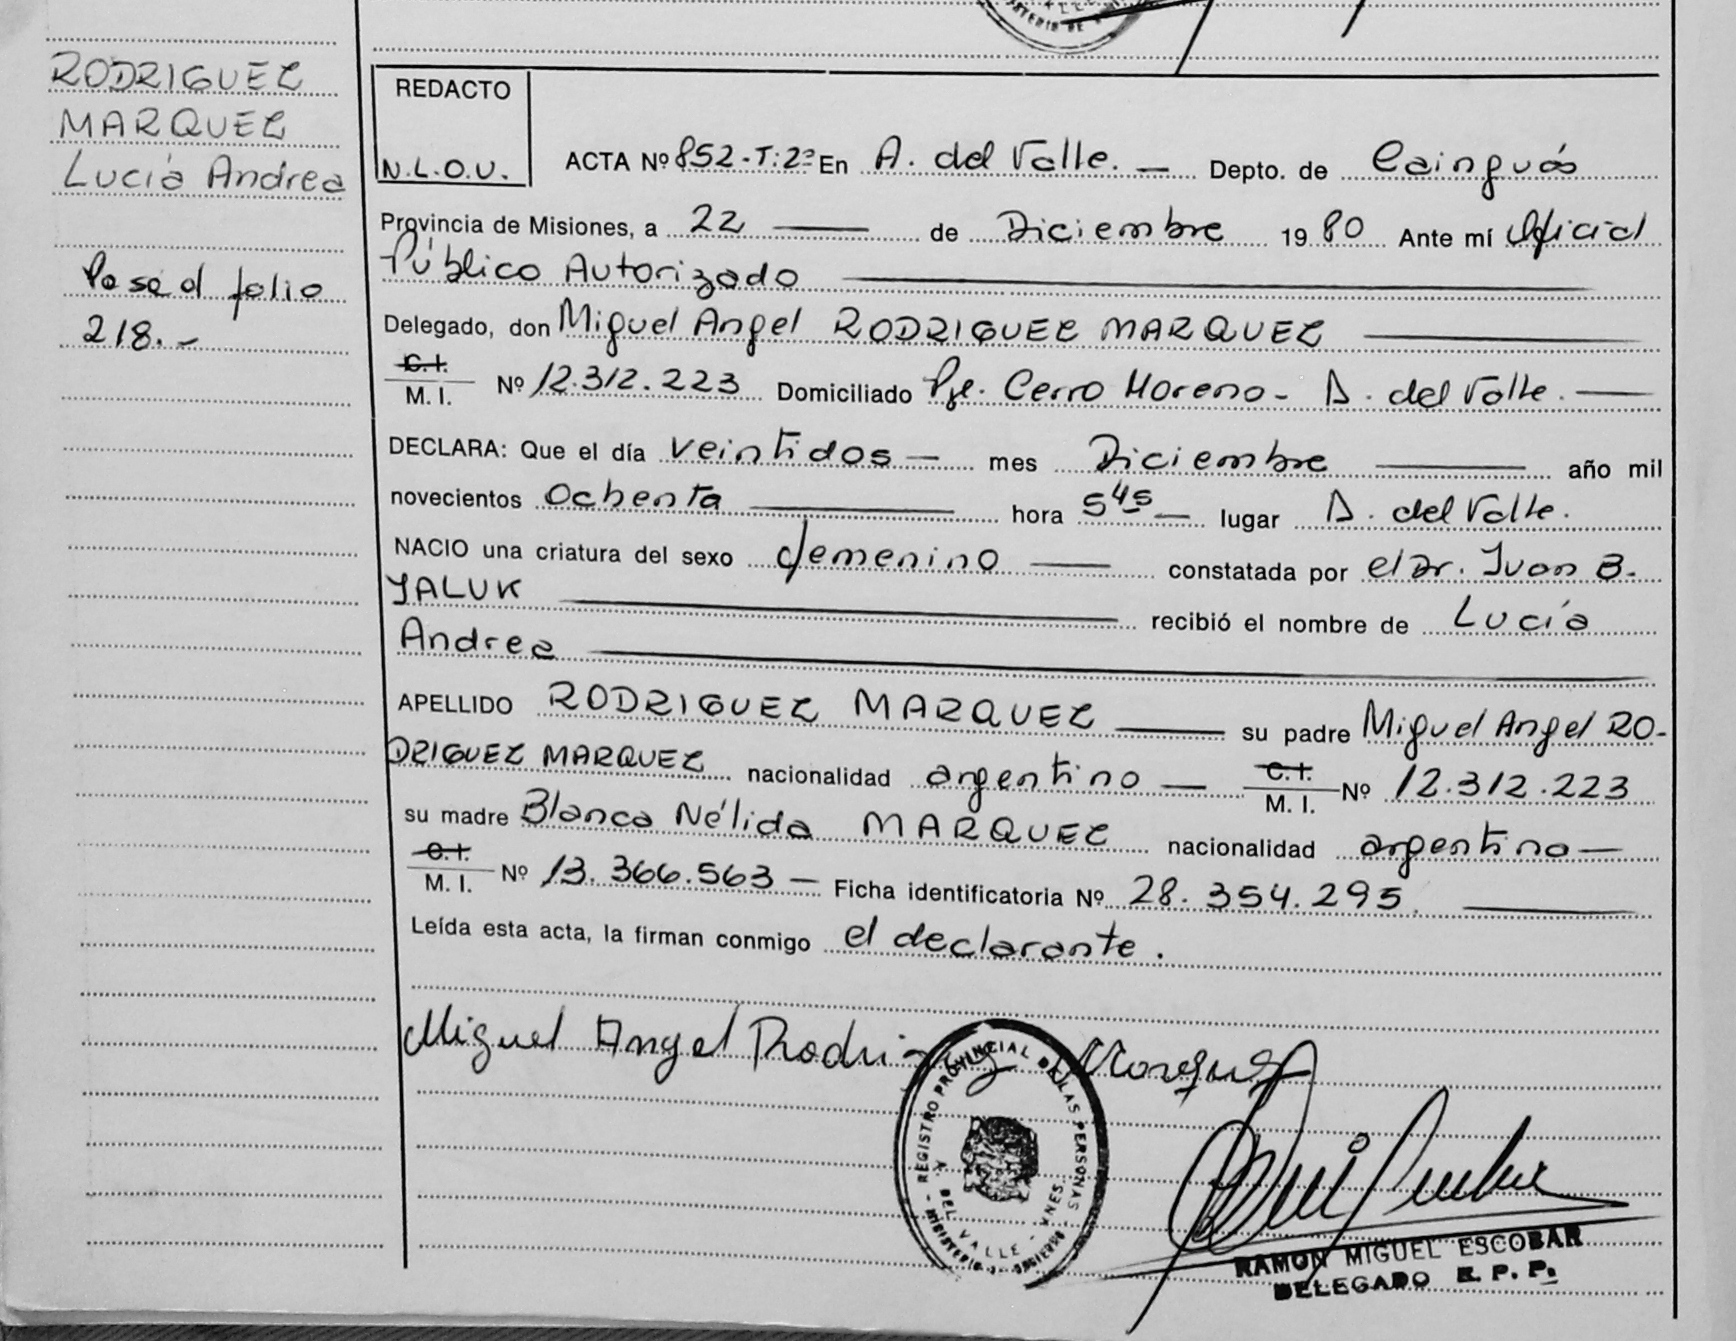 RODRIGUEZ
MARQUEZ
Lucía Andrea
Pasa al folio
218.-
REDACTO
N.L.O.V.
ACTA Nº 852-T:2º En A. del Valle. — Depto. de Cainguás
Provincia de Misiones, a 22 — de Diciembre 1980 Ante mí Oficial
Público Autorizado —
Delegado, don Miguel Angel RODRIGUEZ MARQUEZ —
C.I.
M. I. Nº 12.312.223 Domiciliado Pje. Cerro Moreno - A. del Valle. —
DECLARA: Que el día veintidos — mes Diciembre — año mil
novecientos Ochenta — hora 5 45 — lugar A. del Valle.
NACIO una criatura del sexo femenino — constatada por el Dr. Juan B.
YALUK — recibió el nombre de Lucía
Andrea —
APELLIDO RODRIGUEZ MARQUEZ — su padre Miguel Angel RO-
DRIGUEZ MARQUEZ nacionalidad argentino — C.I.
M. I. Nº 12.312.223
su madre Blanca Nélida MARQUEZ nacionalidad argentino —
C.I.
M. I. Nº 13.366.563 — Ficha identificatoria Nº 28.354.295 —
Leída esta acta, la firman conmigo el declarante.
Miguel Angel Rodriguez Marquez
REGISTRO PROVINCIAL DE LAS PERSONAS
DEL VALLE - MNES
RAMON MIGUEL ESCOBAR
DELEGADO R. P. P.